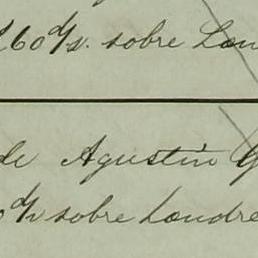 60 d/v. sobre Lon
de Agustin G
0 d/v sobre Londre